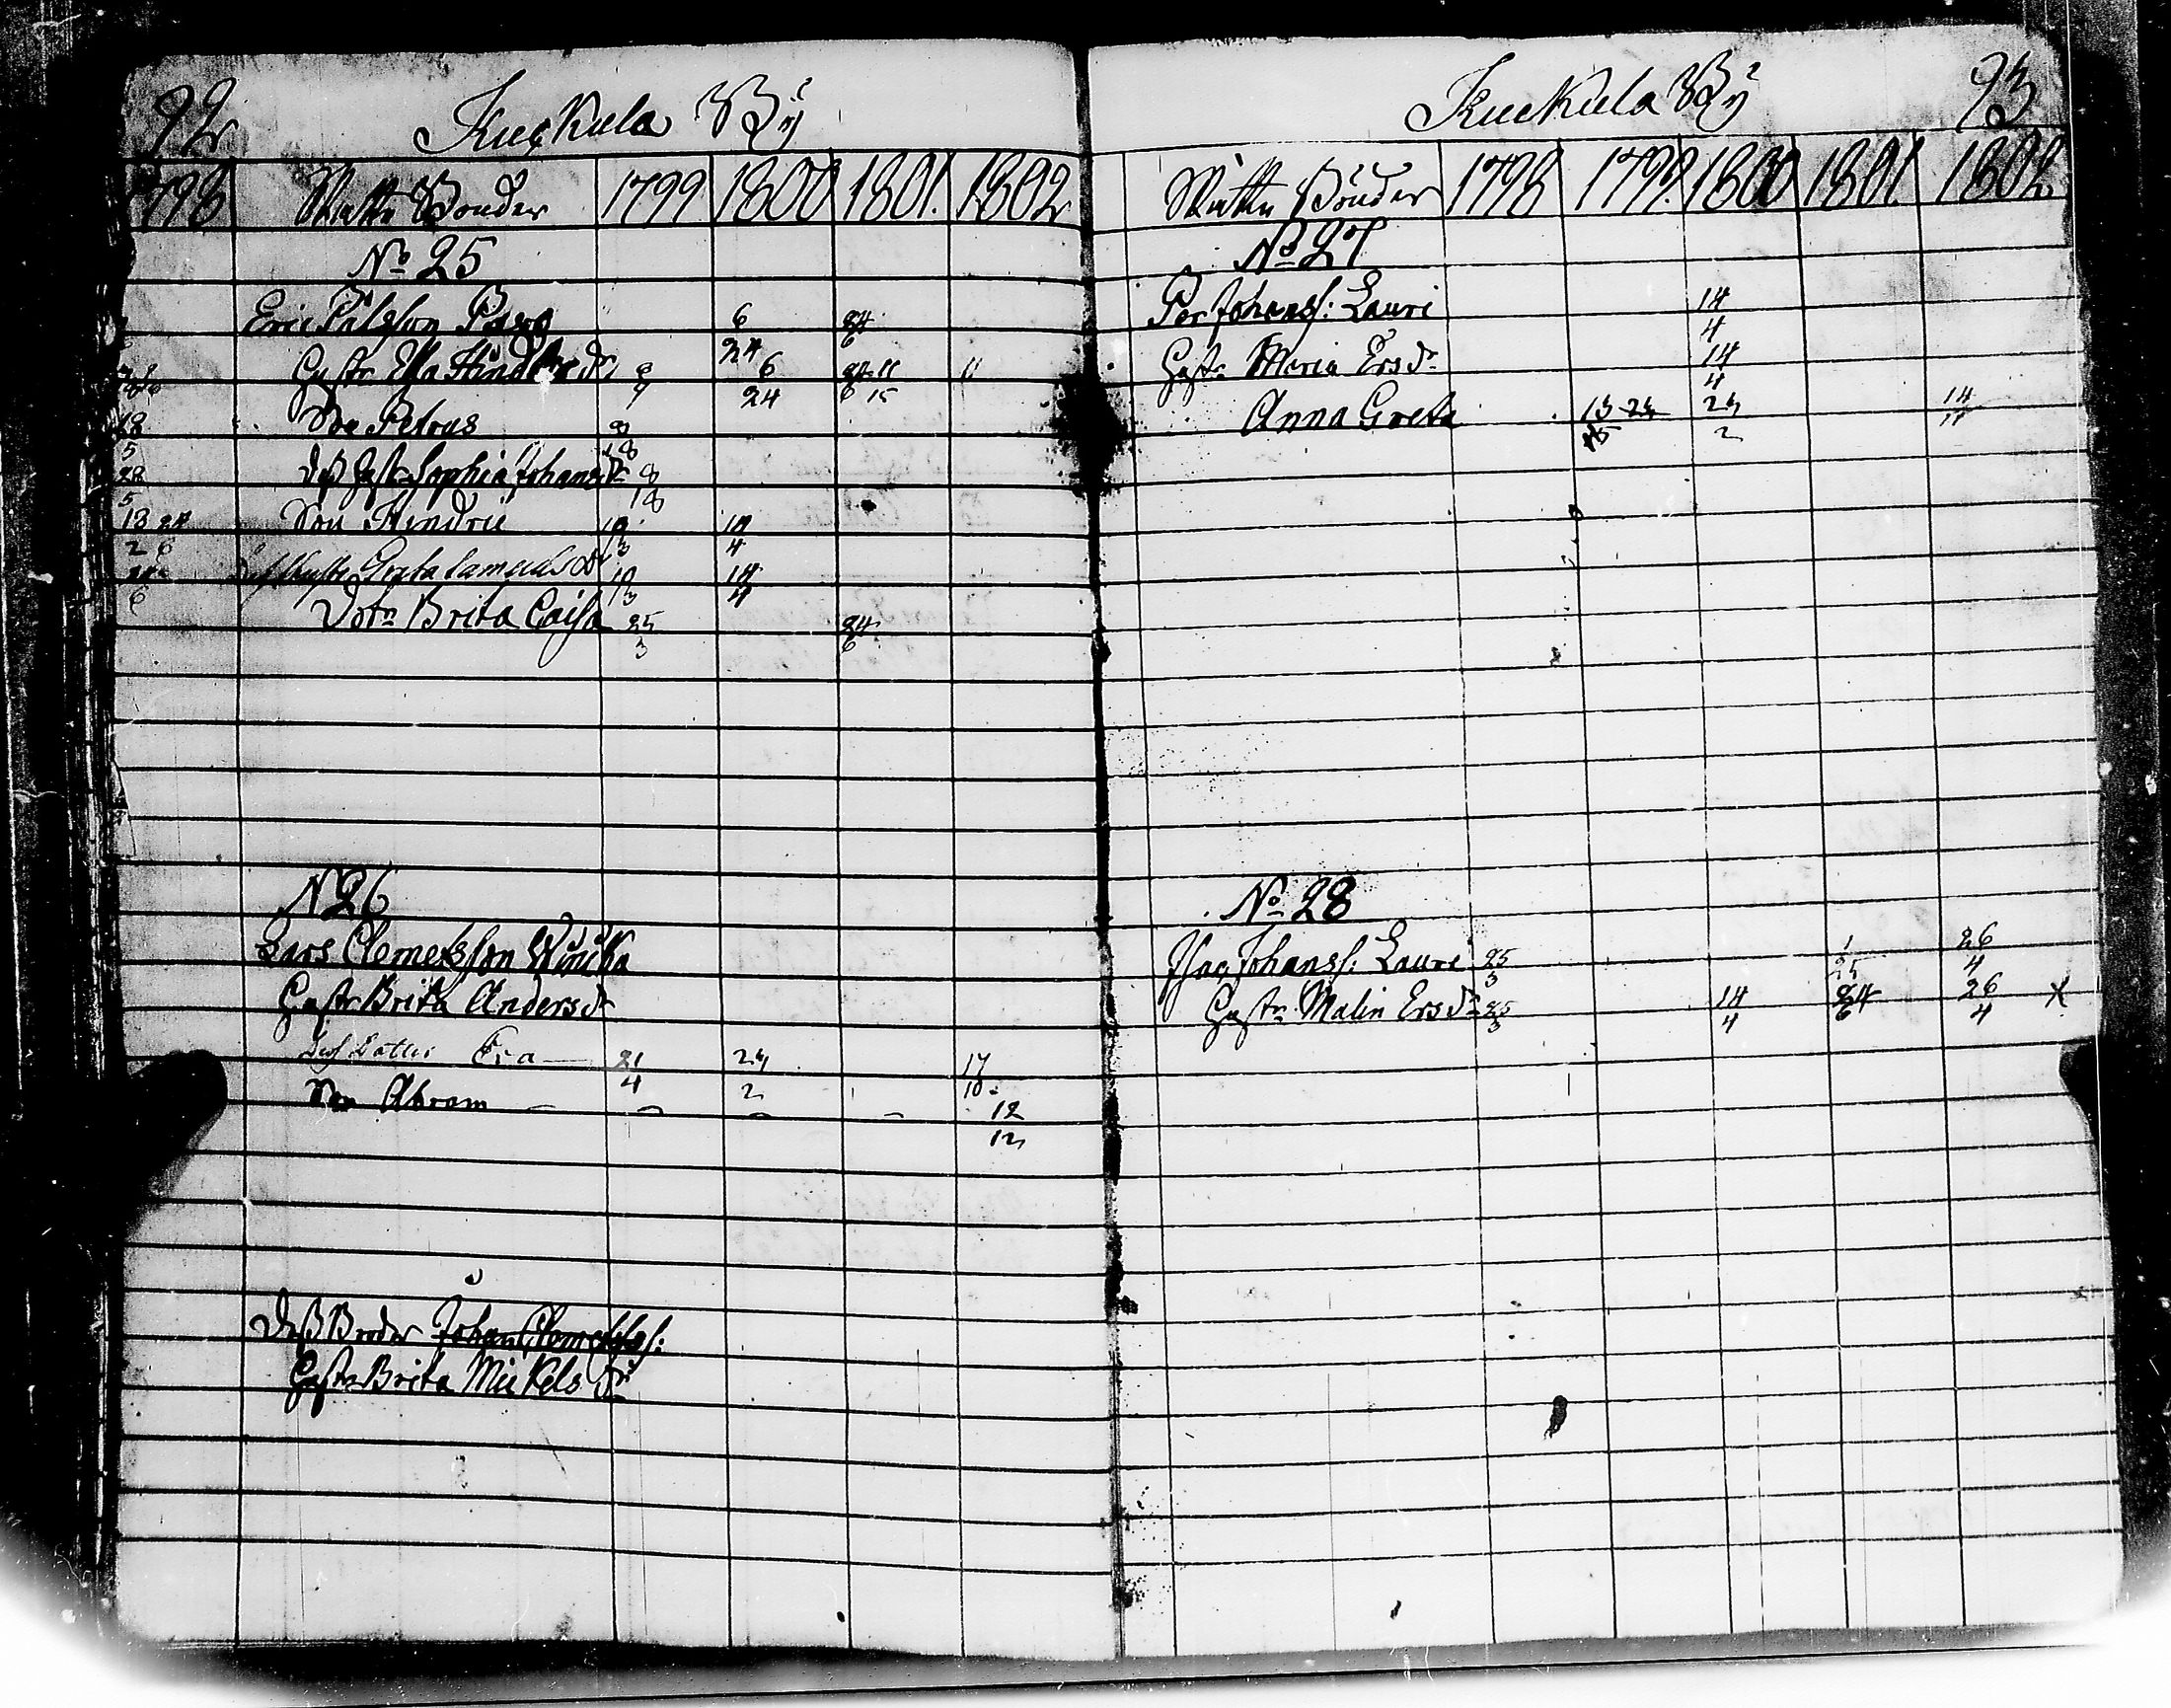 92 Kuckula By
1798 Skatte Bönder 1799 1800 1801. 1802
No 25
Eric Pålsson 6 24
6
Hust: Elsa 24 6 24 11 11
24 6 15
18 Son Petrus 8
5 18
28 Deß Hust: Sophia Johansdr 8
5 18
13 24 Son Hendric 10 14
2 6 3 4
Greta Samuelsdr 10 14
6 3 4
Dotr Brita Caisa 25 24
3 6
N 26
Lars Clemetsson
Hustr Brita Andersdr
Deß Dotter Eva 21 24 17
4 2 10
Son Abram 12
12
Deß Broder Johan Clemetss:
Hustr Brita Mickelsdr
Kuckula By 93
Skatte Bönder 1798 1799 1800 1801 1802
No 27
Per Johanss: Lauri 14
4
Hustr Maria Ersdr 14
4
Anna Greta 13 24 24 14
2 11
No 28
Isac Johanss: Lauri 25 1 26
3 25 4
Hustr Malin Ersdr 25 14 24 26 x
3 4 6 4